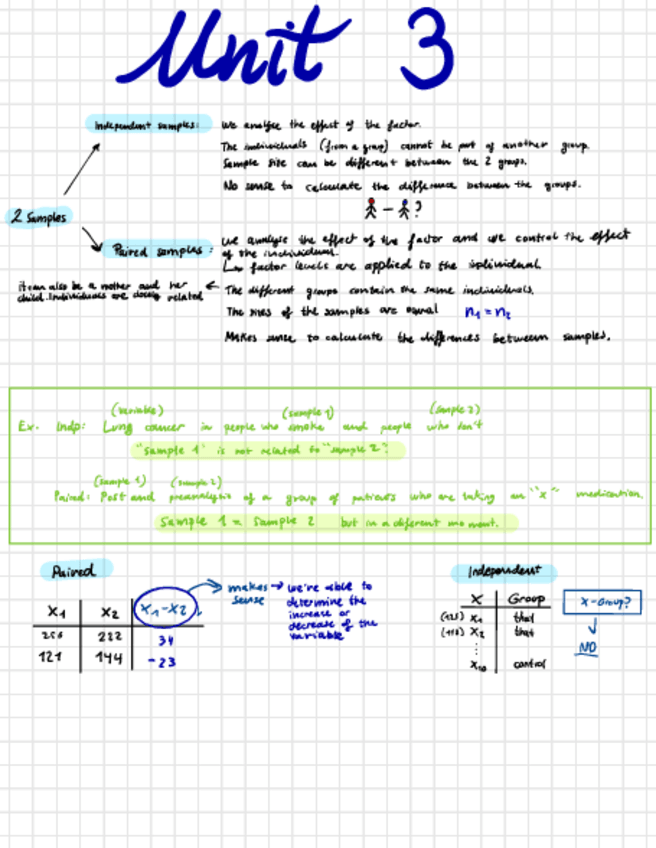 Unit 3
Independent samples: We analyse the effect of the factor.
The individuals (from a group) cannot be part of another group.
Sample size can be different between the 2 groups.
No sense to calculate the difference between the groups.
- ?
2 Samples
Paired samples: We analyse the effect of the factor and we control the effect
of the individual.
↳ factor levels are applied to the individual.
it can also be a mother and her
child. Individuals are related
← The different groups contain the same individuals.
The sizes of the samples are equal n₁ = n₂
Makes sense to calculate the differences between samples.
(variable) (sample 1) (sample 2)
Ex. Indp: Lung cancer in people who smoke and people who don't
"sample 1" is not related to "sample 2".
(sample 1) (sample 2)
Paired: Post and preanalytic of a group of patients who are taking an "x" medication.
Sample 1 = Sample 2 but in a diferent moment.
Paired
X₁ X₂ X₁-X₂
256 222 34
121 144 -23
makes sense → we're able to
determine the
increase or
decrease of the
variable
Independent
X Group
(125) X₁ that
(118) X₂ that
⋮
X₁₀ control
X-Group?
↓
NO